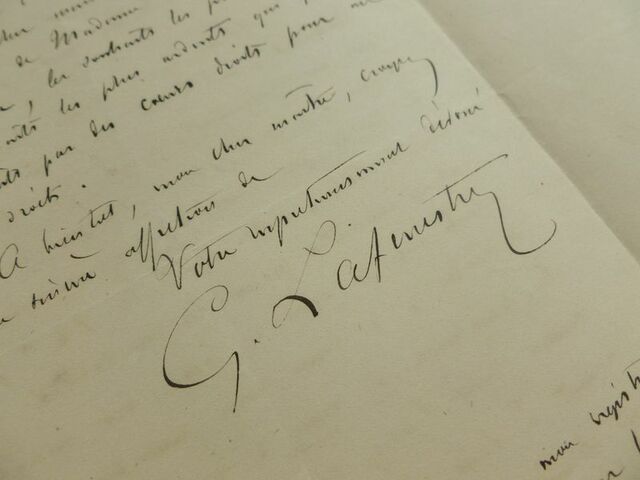 de Madame
, les souhaits les p
les plus ardents que
par des cœurs droits pour
droits.
A bientôt, mon cher maître, croyez
sincère affection de
Votre respectueusement dévoué
G. Lafenestre
mon